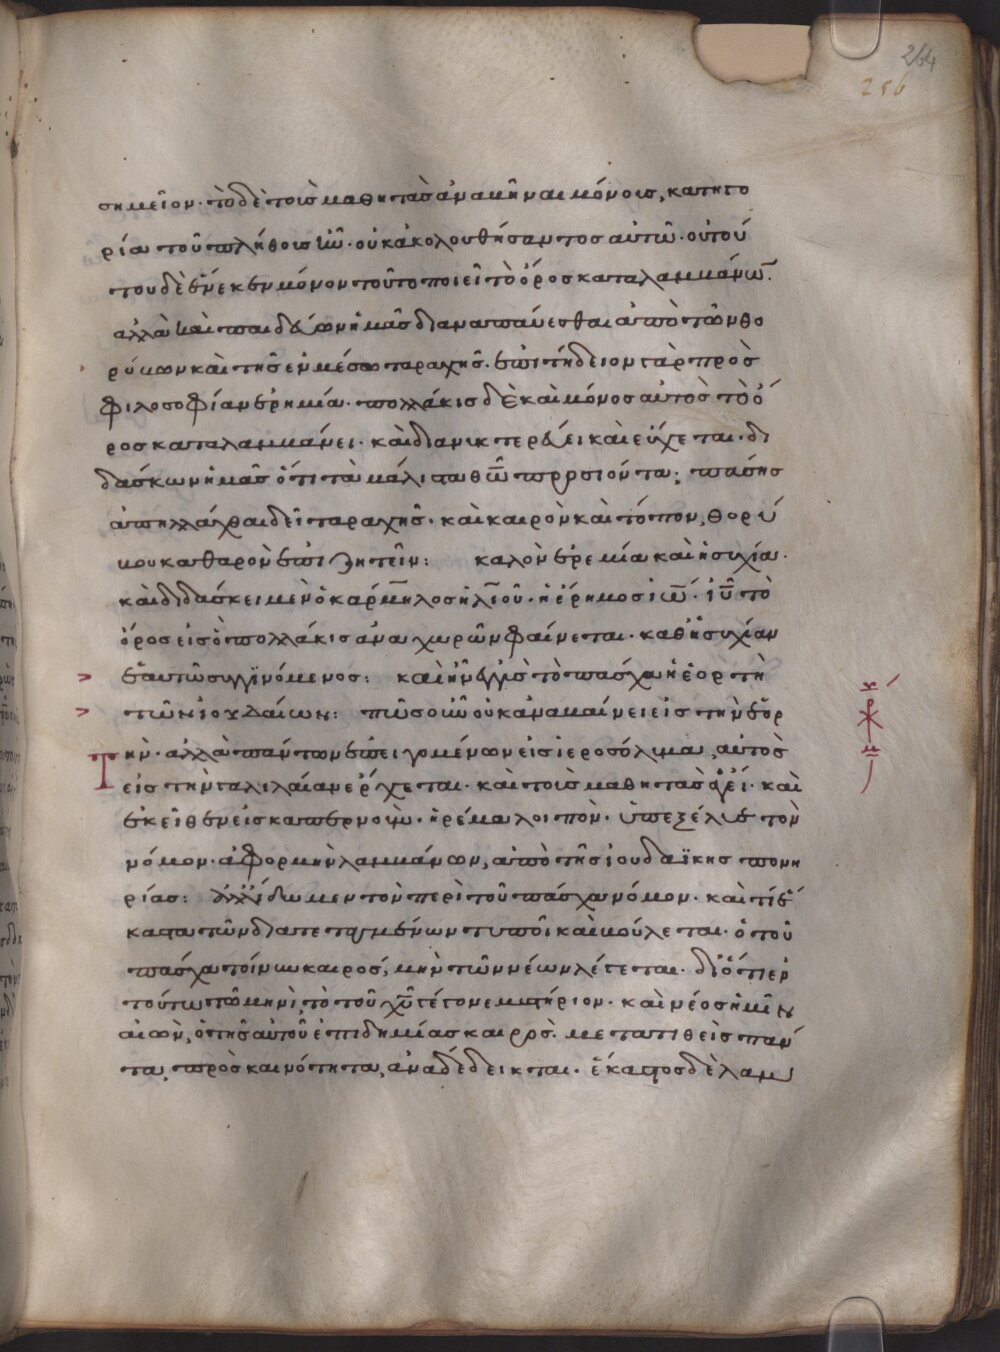 264
256
σημεῖον· τὸ δὲ τοὺς μαθητὰς ἀναβῆναι μόνους, κατηγο
ρία τοῦ πλήθους ἦν οὐκ ἀκολουθήσαντος αὐτῷ· οὐ τού
του δὲ ἕνεκεν μόνον τοῦτο ποιεῖ τὸ ὄρος καταλαμβάνων·
ἀλλὰ καὶ παιδεύων ἡμᾶς διαναπαύεσθαι ἀπὸ τῶν θο
ρύβων καὶ τῆς ἐν μέσω ταραχῆς· ἐπιτήδειον γὰρ πρὸς
φιλοσοφίαν ἐρημία· πολλάκις δὲ καὶ μόνος αὐτὸς τὸ ὄ
ρος καταλαμβάνει· καὶ διανυκτερεύει καὶ εὔχεται· δι
δάσκων ἡμᾶς ὅτι τὸν μάλιστα θῶ προσιόντα; πάσης
ἀπηλλάχθαι δεῖ ταραχῆς· καὶ καιρὸν καὶ τόπον, θορύ
βου καθαρὸν ἐπιζητεῖν: καλὸν ἐρεμία καὶ ἡσυχία·
καὶ διδάσκει μὲν ὁ κάρμηλος ἠλιοῦ· ἡ έρημος ἰω· ἰῦ τὸ
ὄρος εἰς ὃ πολλάκις ἀναχωρῶν φαίνεται· καθ ἡσυχίαν
ἑαυτῶ συγγινόμενος: καὶ ἦν ἐγγὺς τὸ πάσχα ἡ ἑορτὴ
τῶν ἰουδαίων: πῶς οὖν οὐκ ἀναβαίνει εἰς τὴν ἑορ
Τὴν· ἀλλὰ πάντων ἐπειγομένων εἰς ἱεροσόλυμα, αὐτὸς
εἰς τὴν γαλιλαίαν ἔρχεται· καὶ τοὺς μαθητὰς ἄγει· καὶ
ἐκεῖθεν εἰς καπερναούμ· ἠρέμα λοιπὸν· ὑπεξέλυε τὸν
νόμον· ἀφορμὴν λαμβάνων, ἀπὸ τῆς ἰουδαϊκῆς πονη
ρίας: ἀλλ ἴδωμεν τὸν περὶ τοῦ πάσχα νόμον· καὶ τί ἕ
καστα τῶν διατεταγμένων τυποῖ καὶ βούλεται· ὁ τοῦ
πάσχα τοίνυν καιρὸς, μὴν τῶν νέων λέγεται· διόπερ
τούτω τῶ μηνὶ, τὸ τοῦ χῦ γέγονε μυστήριον· καὶ νέος ἡμῖν
αἰὼν, ὁ τῆς αὐτοῦ ἐπιδημίας καιρὸς· μετατιθεὶς πάν
τα, πρὸς καινότητα, ἀναδέδεικται· ἕκαστος δὲ λαμ